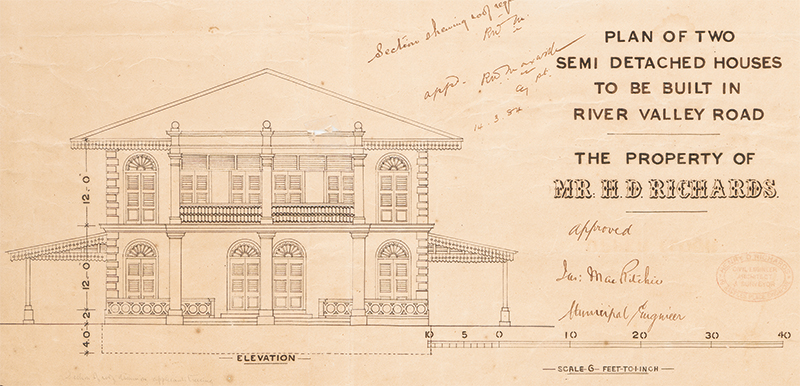 Section shewing roof reqd
appd.
14.3.84
PLAN OF TWO
SEMI DETACHED HOUSES
TO BE BUILT IN
RIVER VALLEY ROAD
THE PROPERTY OF
MR. H. D. RICHARDS.
approved
Jas: MacRitchie
Municipal Engineer
12.0"
12.0"
2"
4.0"
ELEVATION
10 5 0 10 20 30 40
SCALE 6 FEET TO 1 INCH